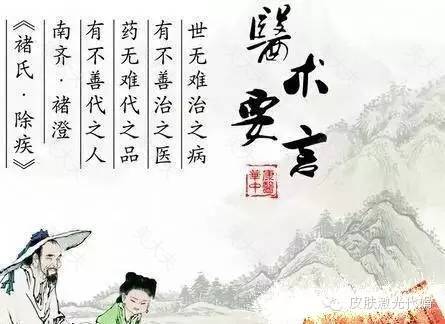 醫术要言
康醫
華中
世无难治之病
有不善治之医
药无难代之品
有不善代之人
南齐·褚澄
《褚氏·除疾》
皮肤激光代